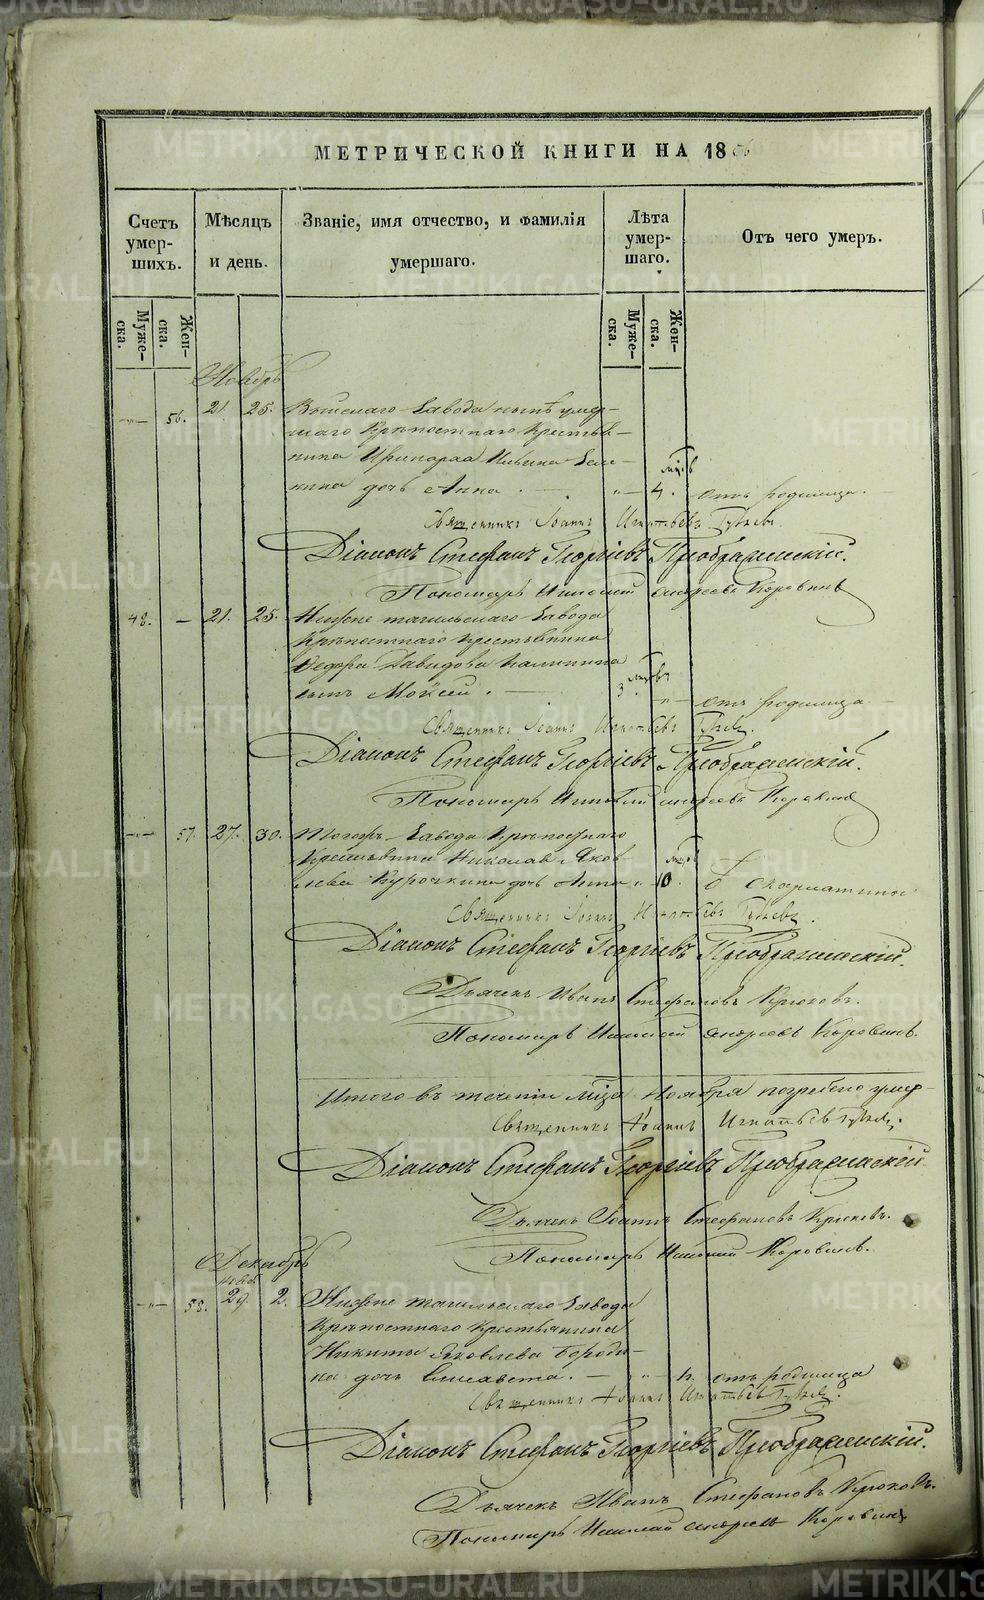 МЕТРИЧЕСКОЙ КНИГИ НА 1856
Счетъ умер-шихъ.
Мѣсяцъ и день.
Званіе, имя отчество, и фамилія умершаго.
Лѣта умер-шаго.
Отъ чего умеръ.
Муже-ска.
Жен-ска.
Муже-ска.
Жен-ска.
Ноябрь
56. 21. 25. Завода нынѣ умер-
шаго Крѣпостнаго Крестья-
нина Ильина
дочь Анна. 4. отъ родимца.
Священникъ Іоаннъ Игнатьевъ
Діаконъ Стефанъ Георгіевъ Преображенскій.
Пономарь Николай Андреевъ Коровинъ
48. 21. 25. Нижне тагильскаго Завода
Крѣпостнаго крестьянина
Федора Давидова Калинина
сынъ Мойсей. 3. отъ родимца
Священникъ Іоаннъ Игнатьевъ
Діаконъ Стефанъ Георгіевъ Преображенскій.
Пономарь Николай Андреевъ Коровинъ
57. 27. 30. Тогожъ Завода Крѣпостнаго
Крестьянина Николая Яков-
лева Курочкина дочь Анна 10. скарлатины
Священникъ Іоаннъ Игнатьевъ
Діаконъ Стефанъ Георгіевъ Преображенскій.
Дьячекъ Иванъ Стефановъ Крюковъ.
Пономарь Николай Андреевъ Коровинъ.
Итого въ теченіи Ноября погребено умер-
Священникъ Іоаннъ Игнатьевъ
Діаконъ Стефанъ Георгіевъ Преображенскій
Дьячекъ Іоаннъ Стефановъ Крюковъ.
Пономарь Николай Коровинъ.
Декабрь
58. 29. 2. Нижне тагильскаго Завода
Крѣпостнаго Крестьянина
Никиты Яковлева Бороди-
на дочь Елисавета. отъ родимца
Священникъ Іоаннъ Игнатьевъ
Діаконъ Стефанъ Георгіевъ Преображенскій.
Дьячекъ Иванъ Стефановъ Крюковъ.
Пономарь Николай Андреевъ Коровинъ
METRIKI.GASO-URAL.RU